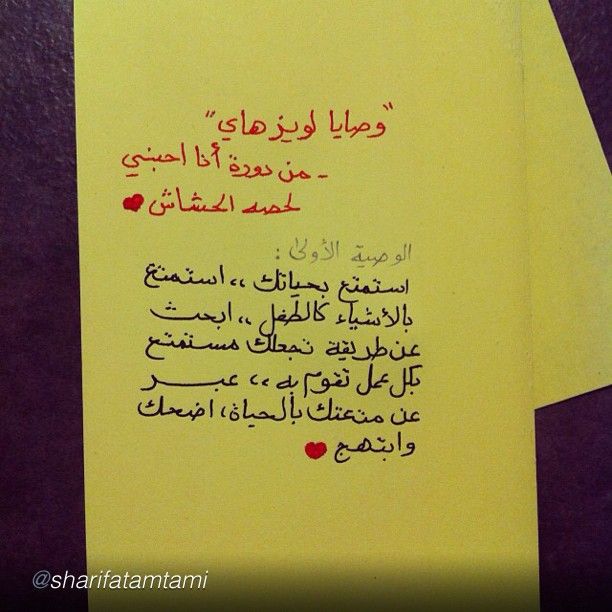 "وصايا لويز هاي"
- من دورة أنا احبني
لحصه الحشاش
الوصية الأولى :
استمتع بحياتك ،، استمتع
بالأشياء كالطفل ،، ابحث
عن طريقة تجعلك مستمتع
بكل عمل تقوم به ،، عبر
عن متعتك بالحياة ، اضحك
وابتهج
@sharifatamtami